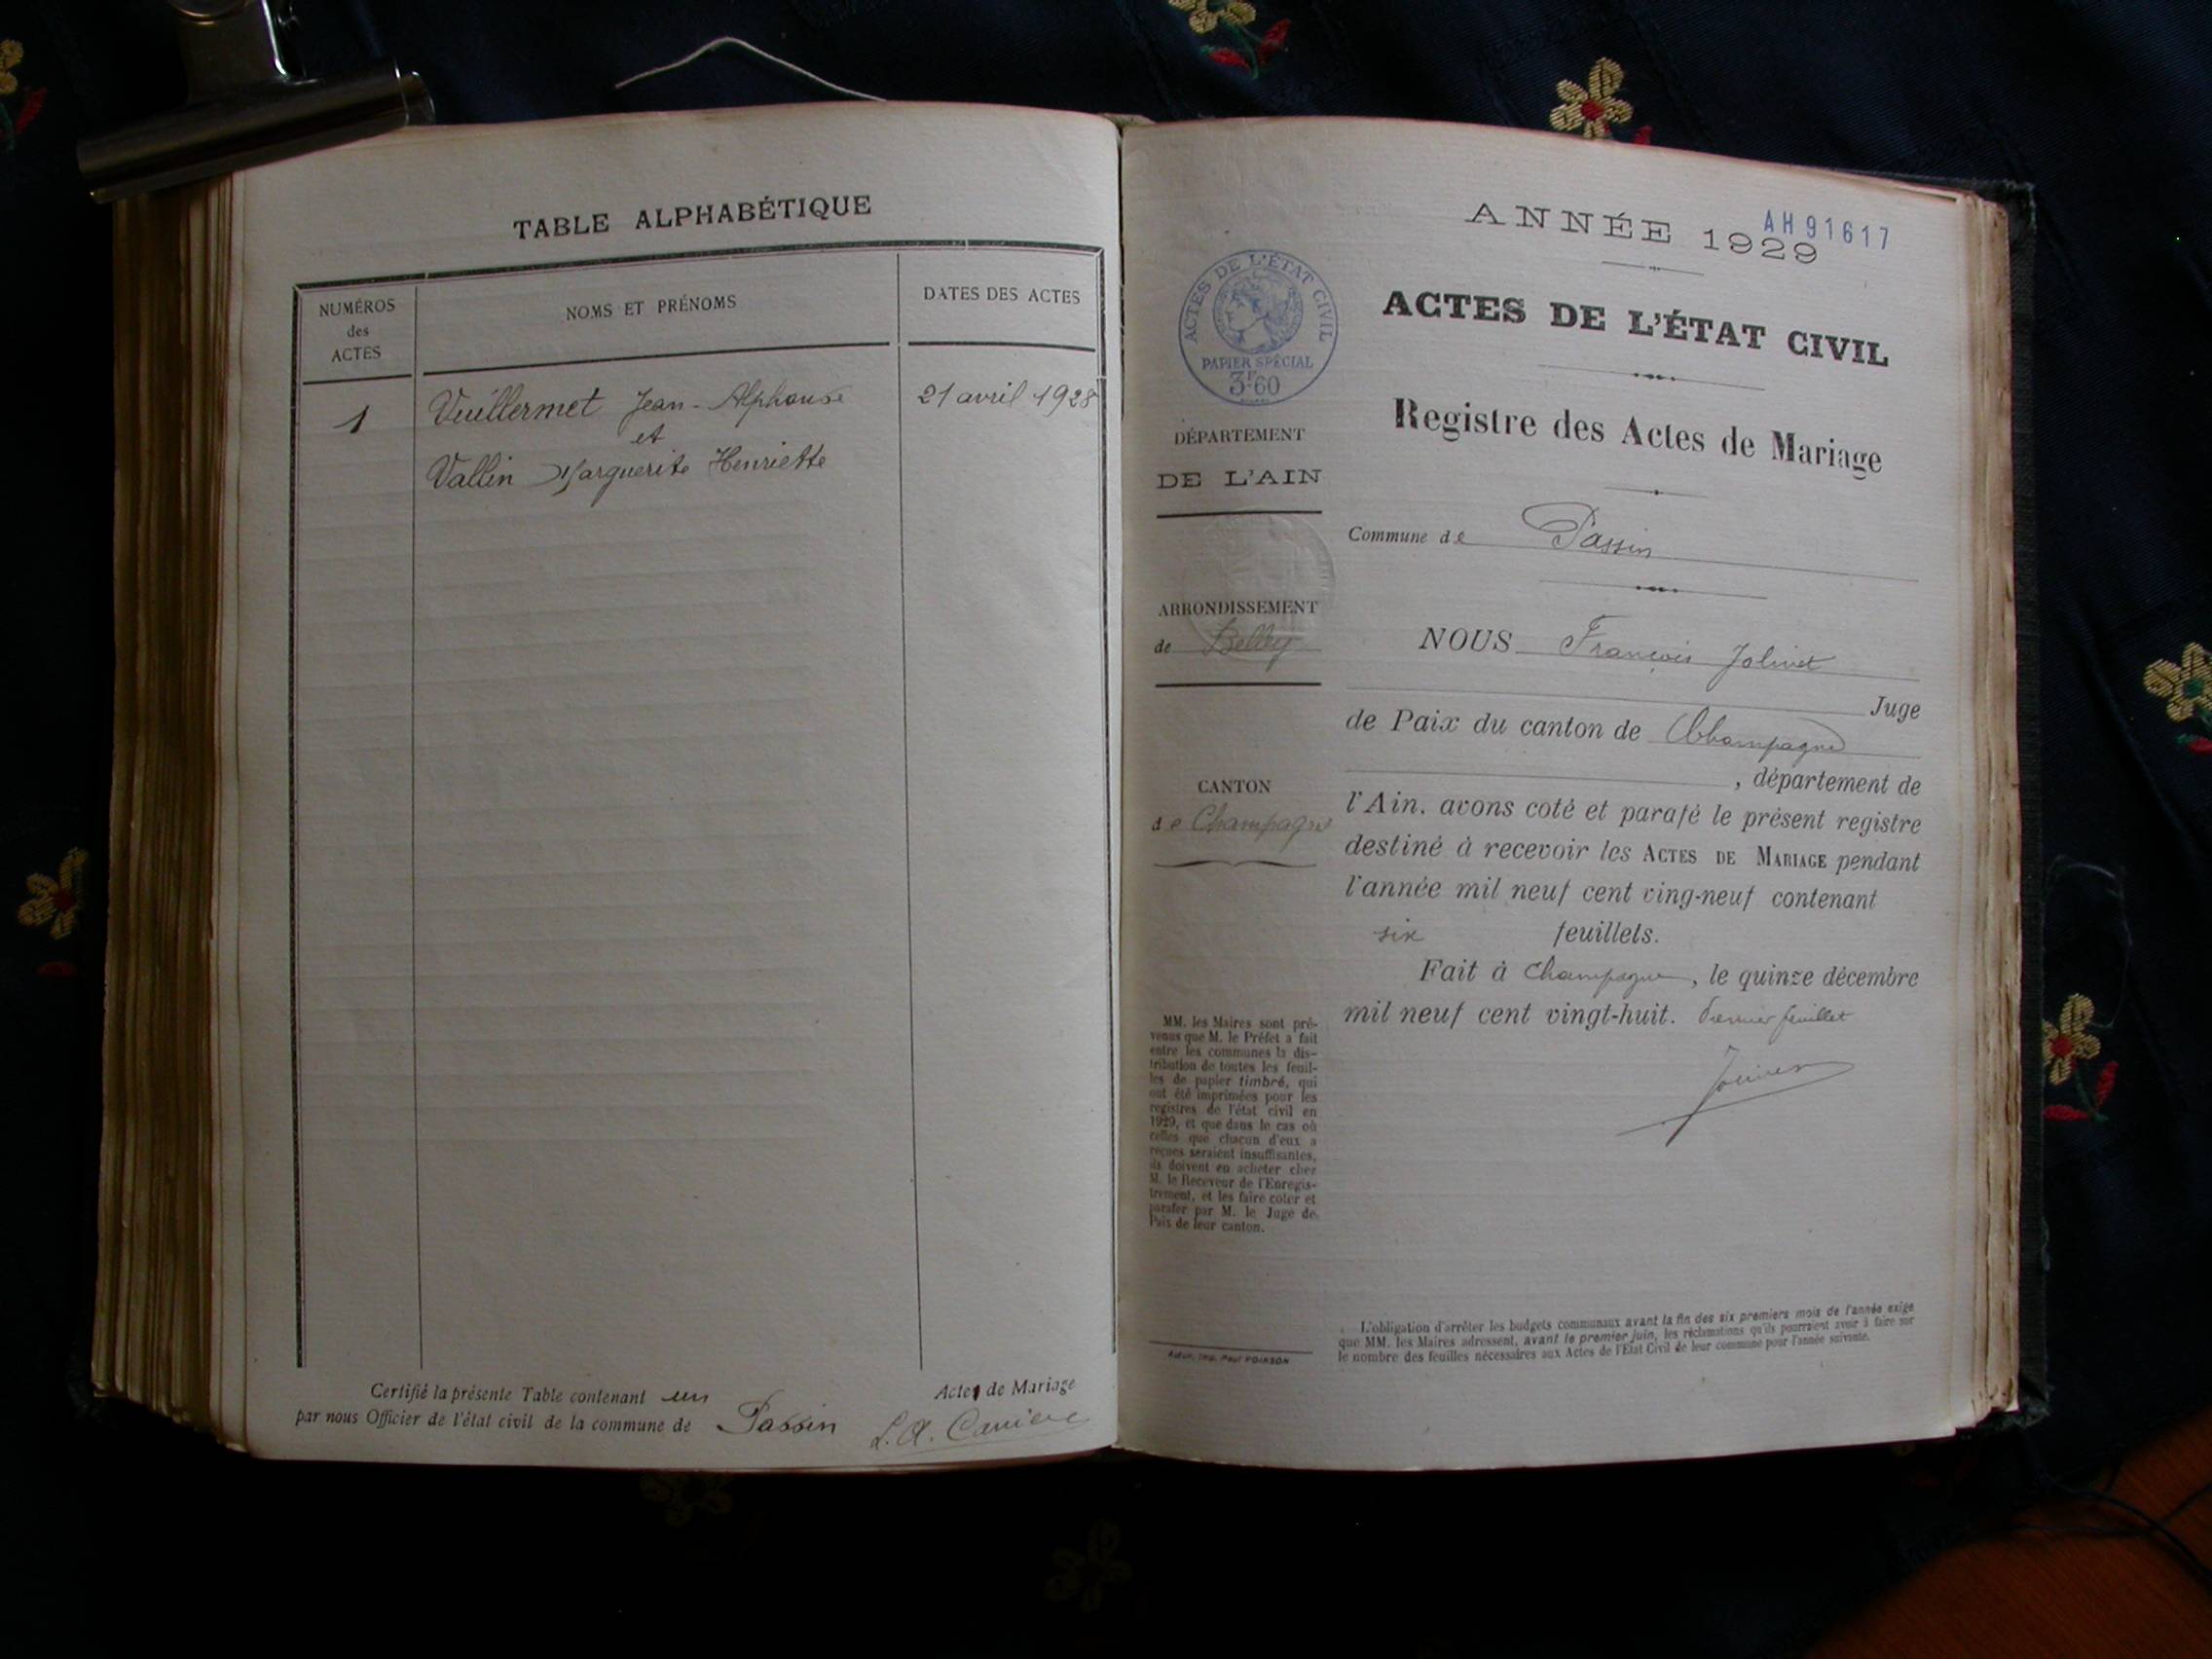 TABLE ALPHABÉTIQUE
NUMÉROS
des
ACTES
NOMS ET PRÉNOMS
DATES DES ACTES
1
Vuillermet Jean-Alphonse
21 avril 1928
et
Vallin Marguerite Henriette
Certifié la présente Table contenant un
Actes de Mariage
par nous Officier de l'état civil de la commune de Passin
ANNÉE 1929
AH91617
ACTES DE L'ÉTAT CIVIL
PAPIER SPÉCIAL
3F60
ACTES DE L'ÉTAT CIVIL
Registre des Actes de Mariage
DÉPARTEMENT
DE L'AIN
Commune de Passin
ARRONDISSEMENT
de Belley
CANTON
de Champagne
MM. les Maires sont pré-
venus que M. le Préfet a fait
entre les communes la dis-
tribution de toutes les feuil-
les de papier timbré, qui
ont été imprimées pour les
registres de l'état civil en
1929, et que dans le cas où
celles que chacun d'eux a
reçues seraient insuffisantes,
ils doivent en acheter chez
M. le Receveur de l'Enregis-
trement, et les faire coter et
parafer par M. le Juge de
Paix de leur canton.
NOUS François Jolivet
Juge
de Paix du canton de Champagne
, département de
l'Ain, avons coté et parafé le présent registre
destiné à recevoir les ACTES DE MARIAGE pendant
l'année mil neuf cent ving-neuf contenant
six feuillets.
Fait à Champagne, le quinze décembre
mil neuf cent vingt-huit. Premier feuillet
Jolivet
L'obligation d'arrêter les budgets communaux avant la fin des six premiers mois de l'année exige
que MM. les Maires adressent, avant le premier juin, les réclamations qu'ils pourraient avoir à faire sur
le nombre des feuilles nécessaires aux Actes de l'État Civil de leur commune pour l'année suivante.